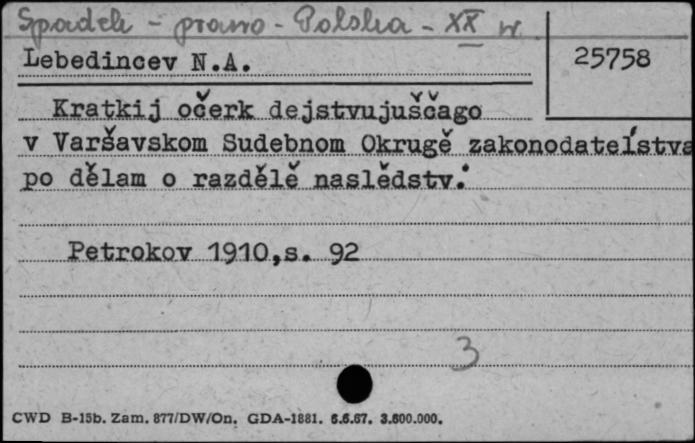 Spadek - prawo - Polska - XX w.
Lebedincev N.A.
25758
Kratkij očerk dejstvujuščago
v Varšavskom Sudebnom Okrugě zakonodatelśtva
po dělam o razdělě naslědstv.
Petrokov 1910,s. 92
3
CWD B-15b. Zam. 877/DW/On. GDA-1881. 6.6.67. 3.600.000.